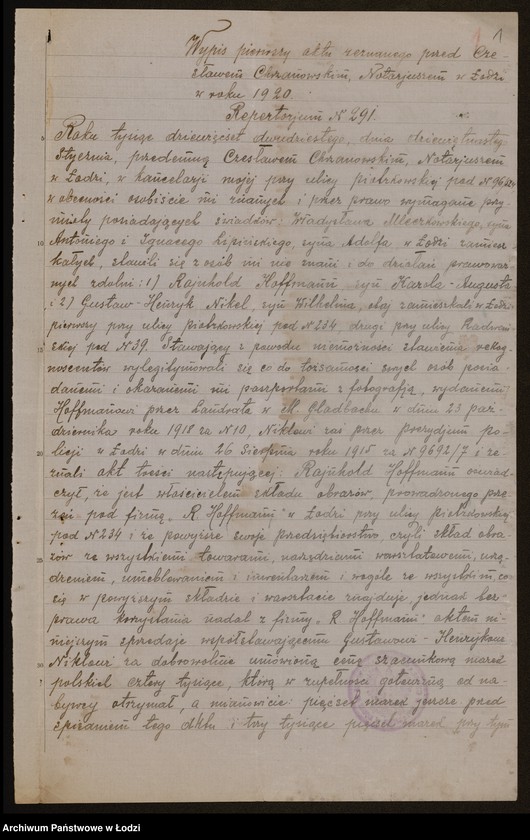 1 1
Wypis pierwszy aktu zeznanego przed Cze-
sławem Chrzanowskim, Notarjuszem w Łodzi
w roku 1920.
Repertorjum N 291.
Roku tysiąc dziewięćset dwudziestego, dnia dziewiętnastego
Stycznia, przedemną Czesławem Chrzanowskim, Notarjuszem
w Łodzi, w kancelarji mojej przy ulicy Piotrkowskiej pod N 96
w obecności osobiście mi znanych i przez prawo wymagane przy-
mioty posiadających świadków: Władysława Mleczkowskiego, syna
10 Antoniego i Ignacego syna Adolfa, w Łodzi zamiesz-
kałych, stawili się z osób mi nie znani i do działań prawoważ-
nych zdolni: 1) Rajnhold Hoffmann syn Karola-Augusta
i 2) Gustaw-Henryk Nikel, syn Wilhelma, obaj zamieszkali w Łodzi
pierwszy przy ulicy Piotrkowskiej pod N 234, drugi przy ulicy Radwań-
15 skiej pod N 39. Stawający z powodu niemożności stawienia rekog-
noscentów wylegitymowali się co do tożsamości swych osób posia-
danemi i okazanemi mi paszportami z fotografją, wydanemi
Hoffmanowi przez Landrata w M. Gladbachu w dniu 23 paź-
dziernika roku 1918 za N 10, Niklowi zaś przez prezydjum po-
20 licji w Łodzi w dniu 26 Sierpnia roku 1915 za N 9692/7 i ze-
znali akt treści następującej: Rajnhold Hoffmann oświad-
czył, że jest właścicielem składu obrazów, prowadzonego prze-
zeń pod firmą „R. Hoffmann" w Łodzi przy ulicy Piotrkowskiej
pod N 234 i że powyższe swoje przedsiębiorstwo, czyli skład obra-
25 zów ze wszystkiemi towarami, narzędziami warsztatowemi, urzą-
dzeniem, umeblowaniem i inwentarzem i wogóle ze wszystkim, co
się w powyższym składzie i warsztacie znajduje, jednak bez
prawa korzystania nadal z firmy „R. Hoffmann" aktem ni-
niejszym sprzedaje współstawającemu Gustawowi-Henrykowi
30 Niklowi za dobrowolnie umówioną cenę szacunkową marek
polskich cztery tysiące, którą w zupełności gotowizną od na-
bywcy otrzymał, a mianowicie: pięćset marek jeszcze przed
zeznaniem tego aktu i trzy tysiące pięćset marek przy tym
Archiwum Państwowe w Łodzi